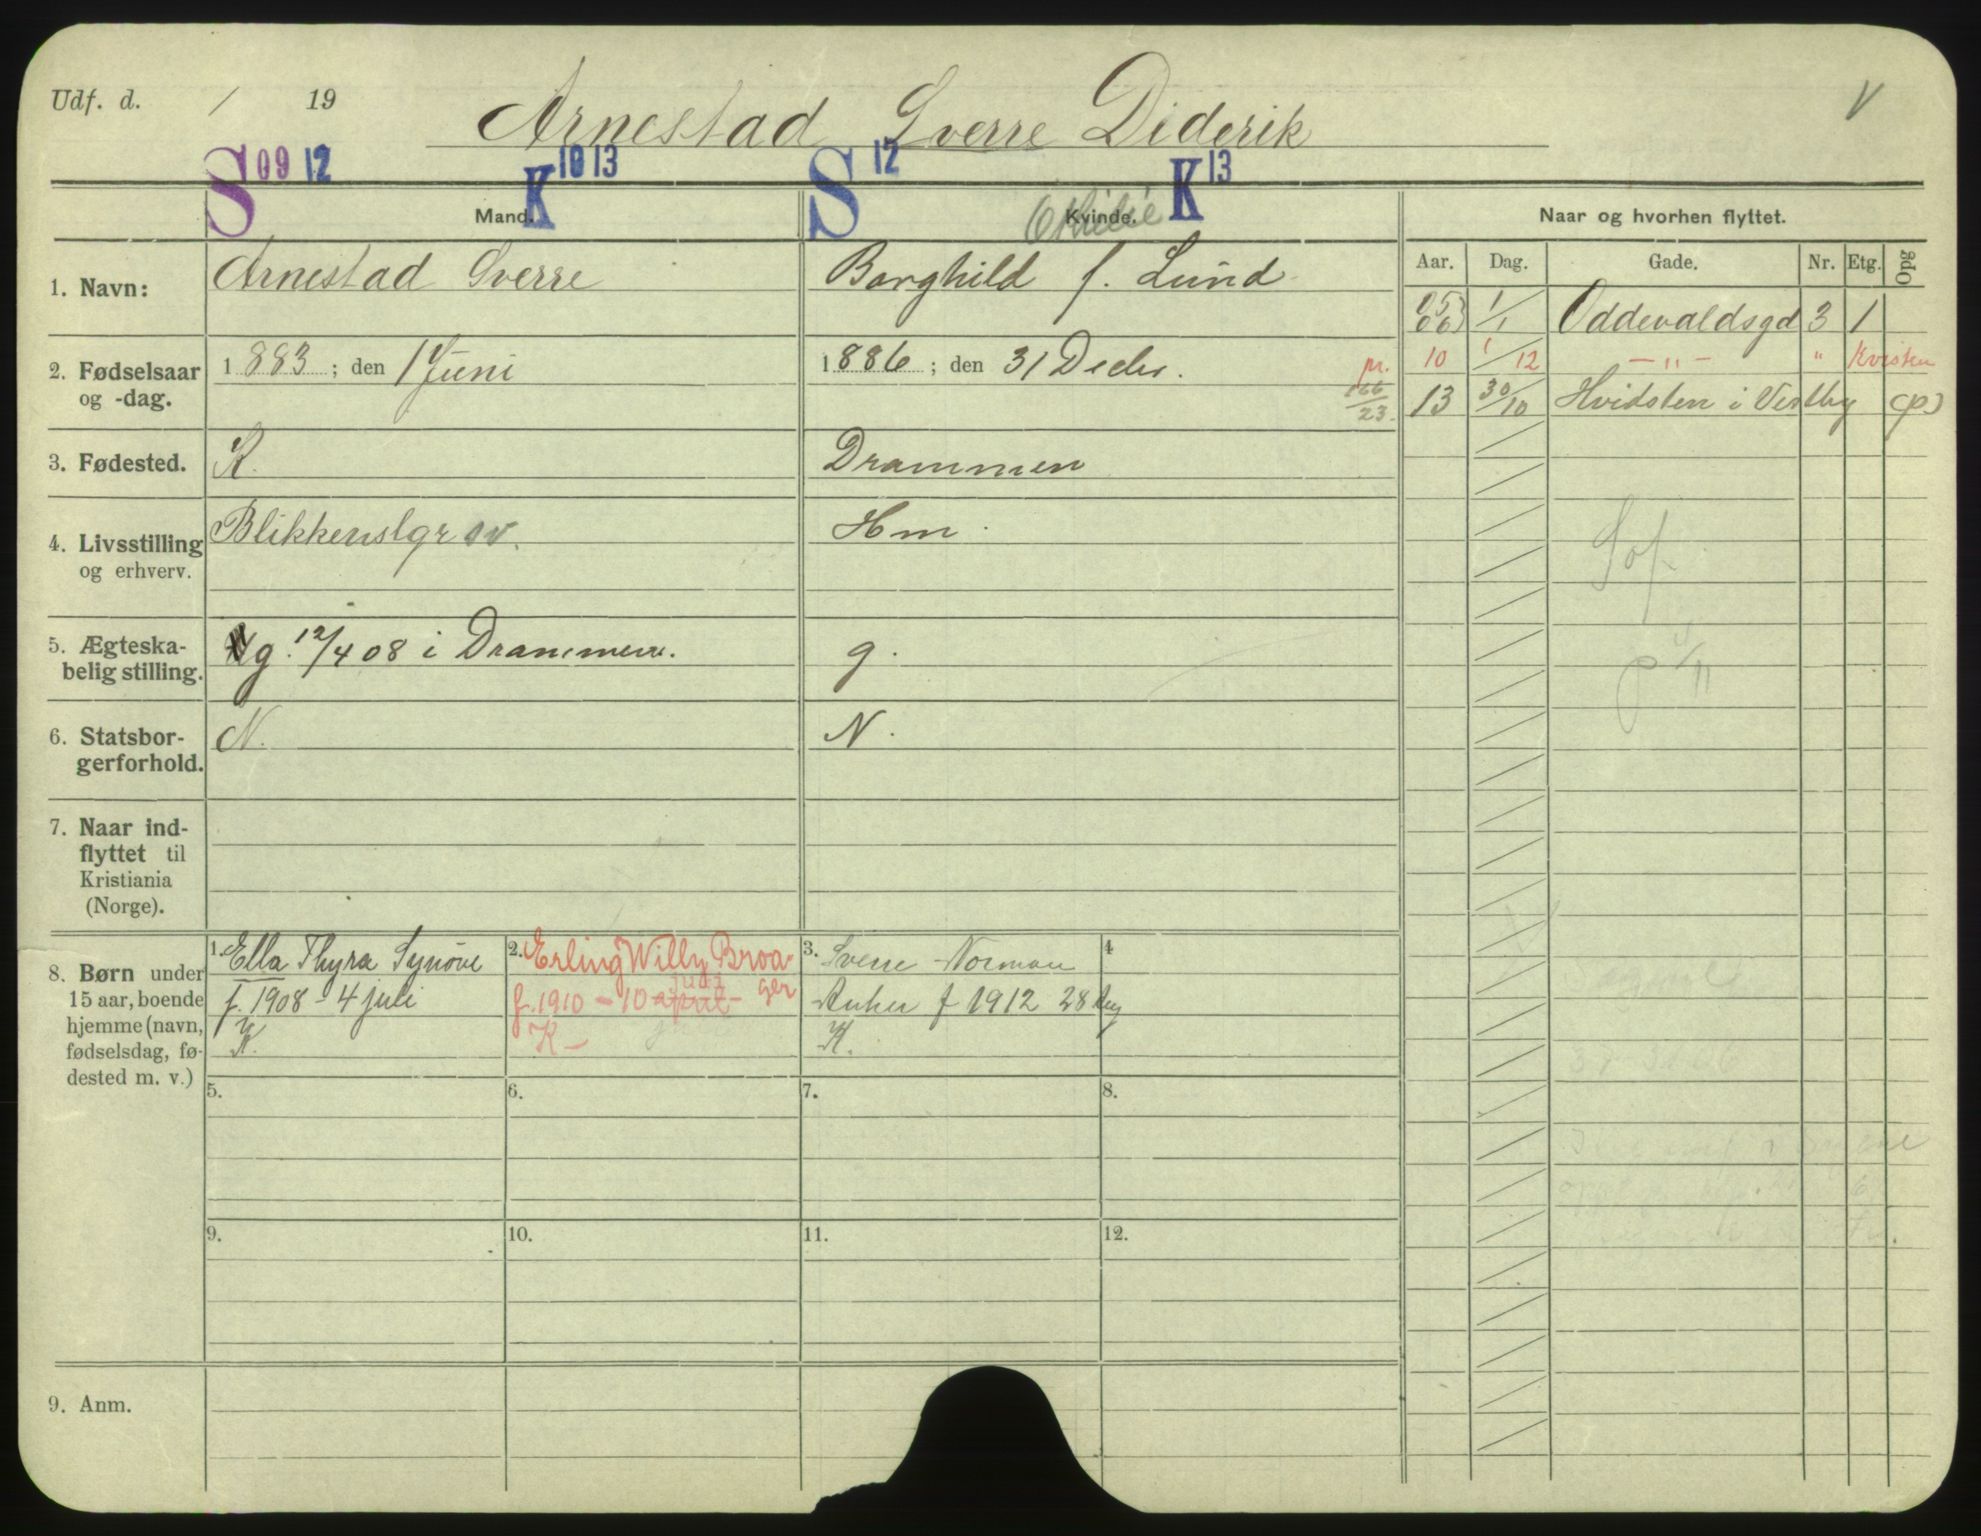 Udf. d. / 19
Arnestad Sverre Diderik
V
S 09 12 K 10 13 S 12 K 13
Mand. Kvinde. Naar og hvorhen flyttet.
Othilie
Aar. Dag. Gade. Nr. Etg. Opg
1. Navn: Arnestad Sverre Borghild f. Lund
05
06) 1/1 Oddevaldsgd 3 1
2. Fødselsaar og -dag. 1883; den 1 Juni 1886; den 31 Decbr.
pr. 10 1/12 — " — " Kvisten
166/23. 13 30/10 Hvidsten i Vestby (p)
3. Fødested. K. Drammen
4. Livsstilling og erhverv. Blikkenslgr sv. Hm.
Sof.
5. Ægteska-
belig stilling. g. 12/4 08 i Drammen. g.
P 4/11
6. Statsbor-
gerforhold. N. N.
7. Naar ind-
flyttet til
Kristiania
(Norge).
8. Børn under
15 aar, boende
hjemme (navn,
fødselsdag, fø-
dested m. v.)
1. Ella Thyra Synöve
f. 1908 - 4 juli
K.
2. Erling Willy Broa-
ger
juni
f. 1910 - 10 april -
K -
3. Sverre Norman
Anker f 1912 28 Aug
K.
4
5. 6. 7. 8.
9. 10. 11. 12.
9. Anm.